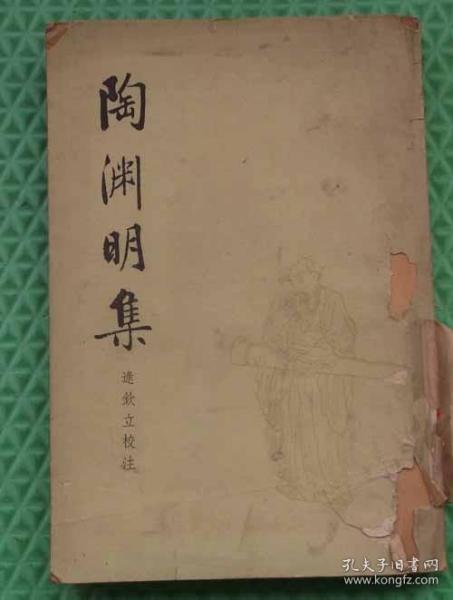 陶渊明集
逯钦立校注
孔夫子旧书网
www.kongfz.com